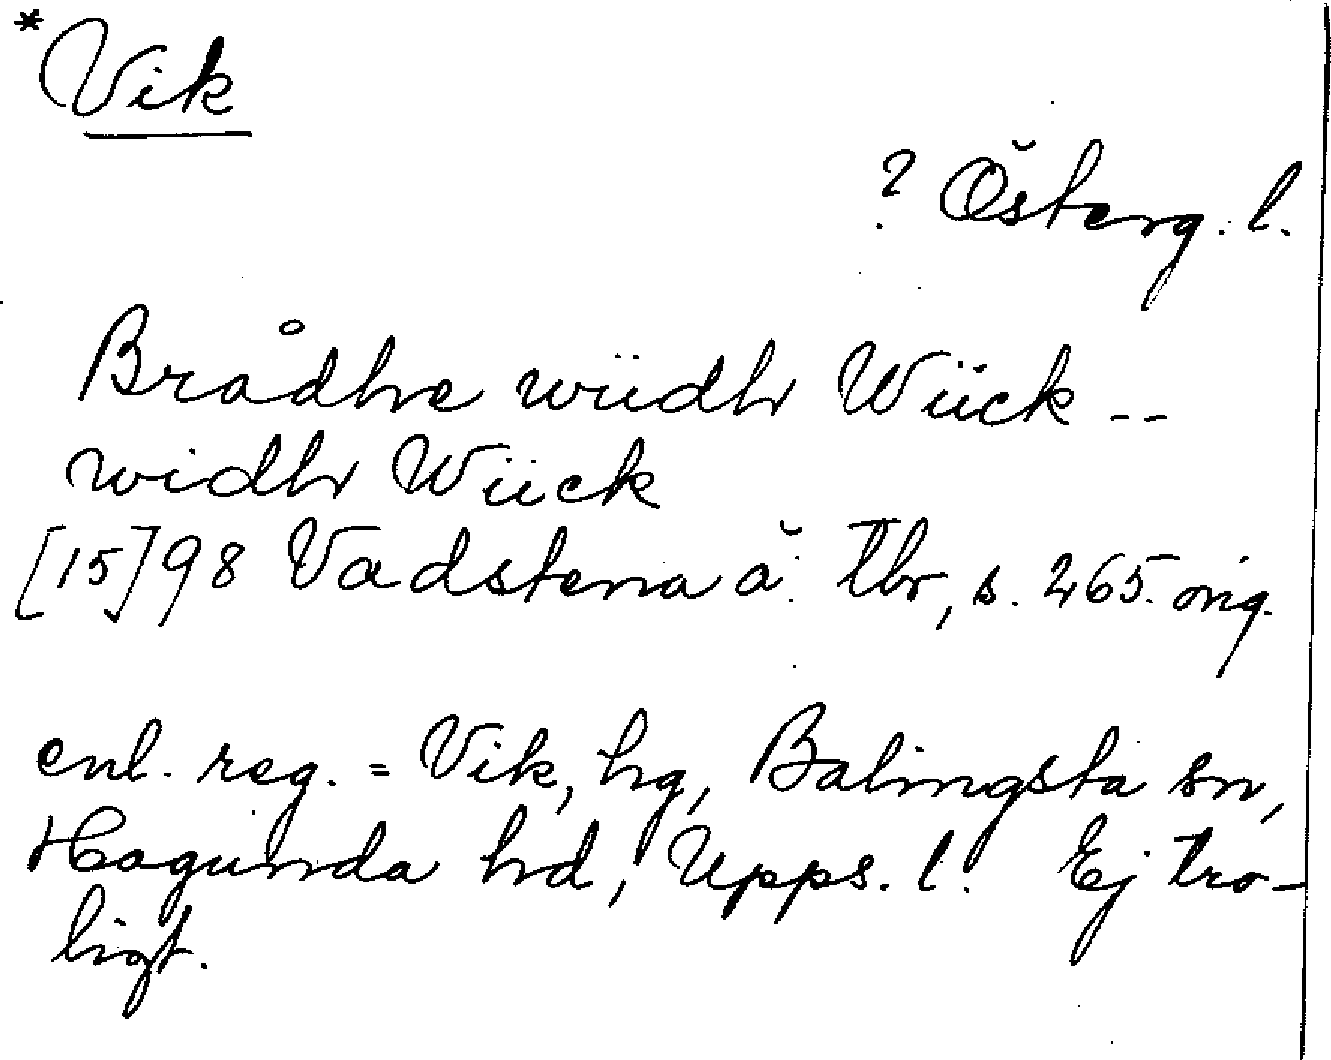 *Vik
? Österg. l.
Brådhe wiidh Wiick --
widh Wiick
[15]98 Vadstena ä. tbr, s. 265. orig.
enl. reg. = Vik, hg, Balingsta sn,
Hagunda hd, Upps. l. Ej tro-
ligt.